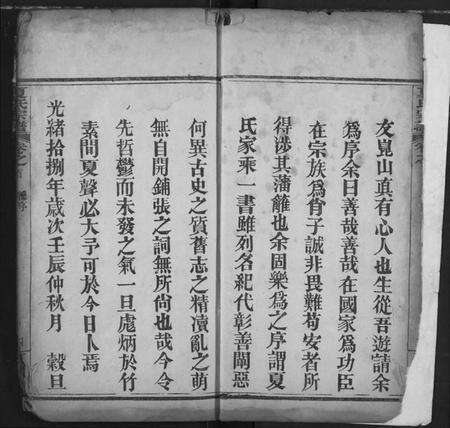 友崑山眞有心人也生從吾遊請余
爲序余曰善哉善哉在國家爲功臣
在宗族爲肖子誠非畏難苟安者所
得涉其藩籬也余固樂爲之序謂夏
氏家乘一書雖列名紀代彰善闡惡
何異古史之質舊志之精瀆亂之萌
無自開鋪張之詞無所尙也哉今令
先哲鬱而未發之气一旦彪炳於竹
素間夏聲必大予可於今日卜焉
光緒拾捌年歲次壬辰仲秋月 穀旦